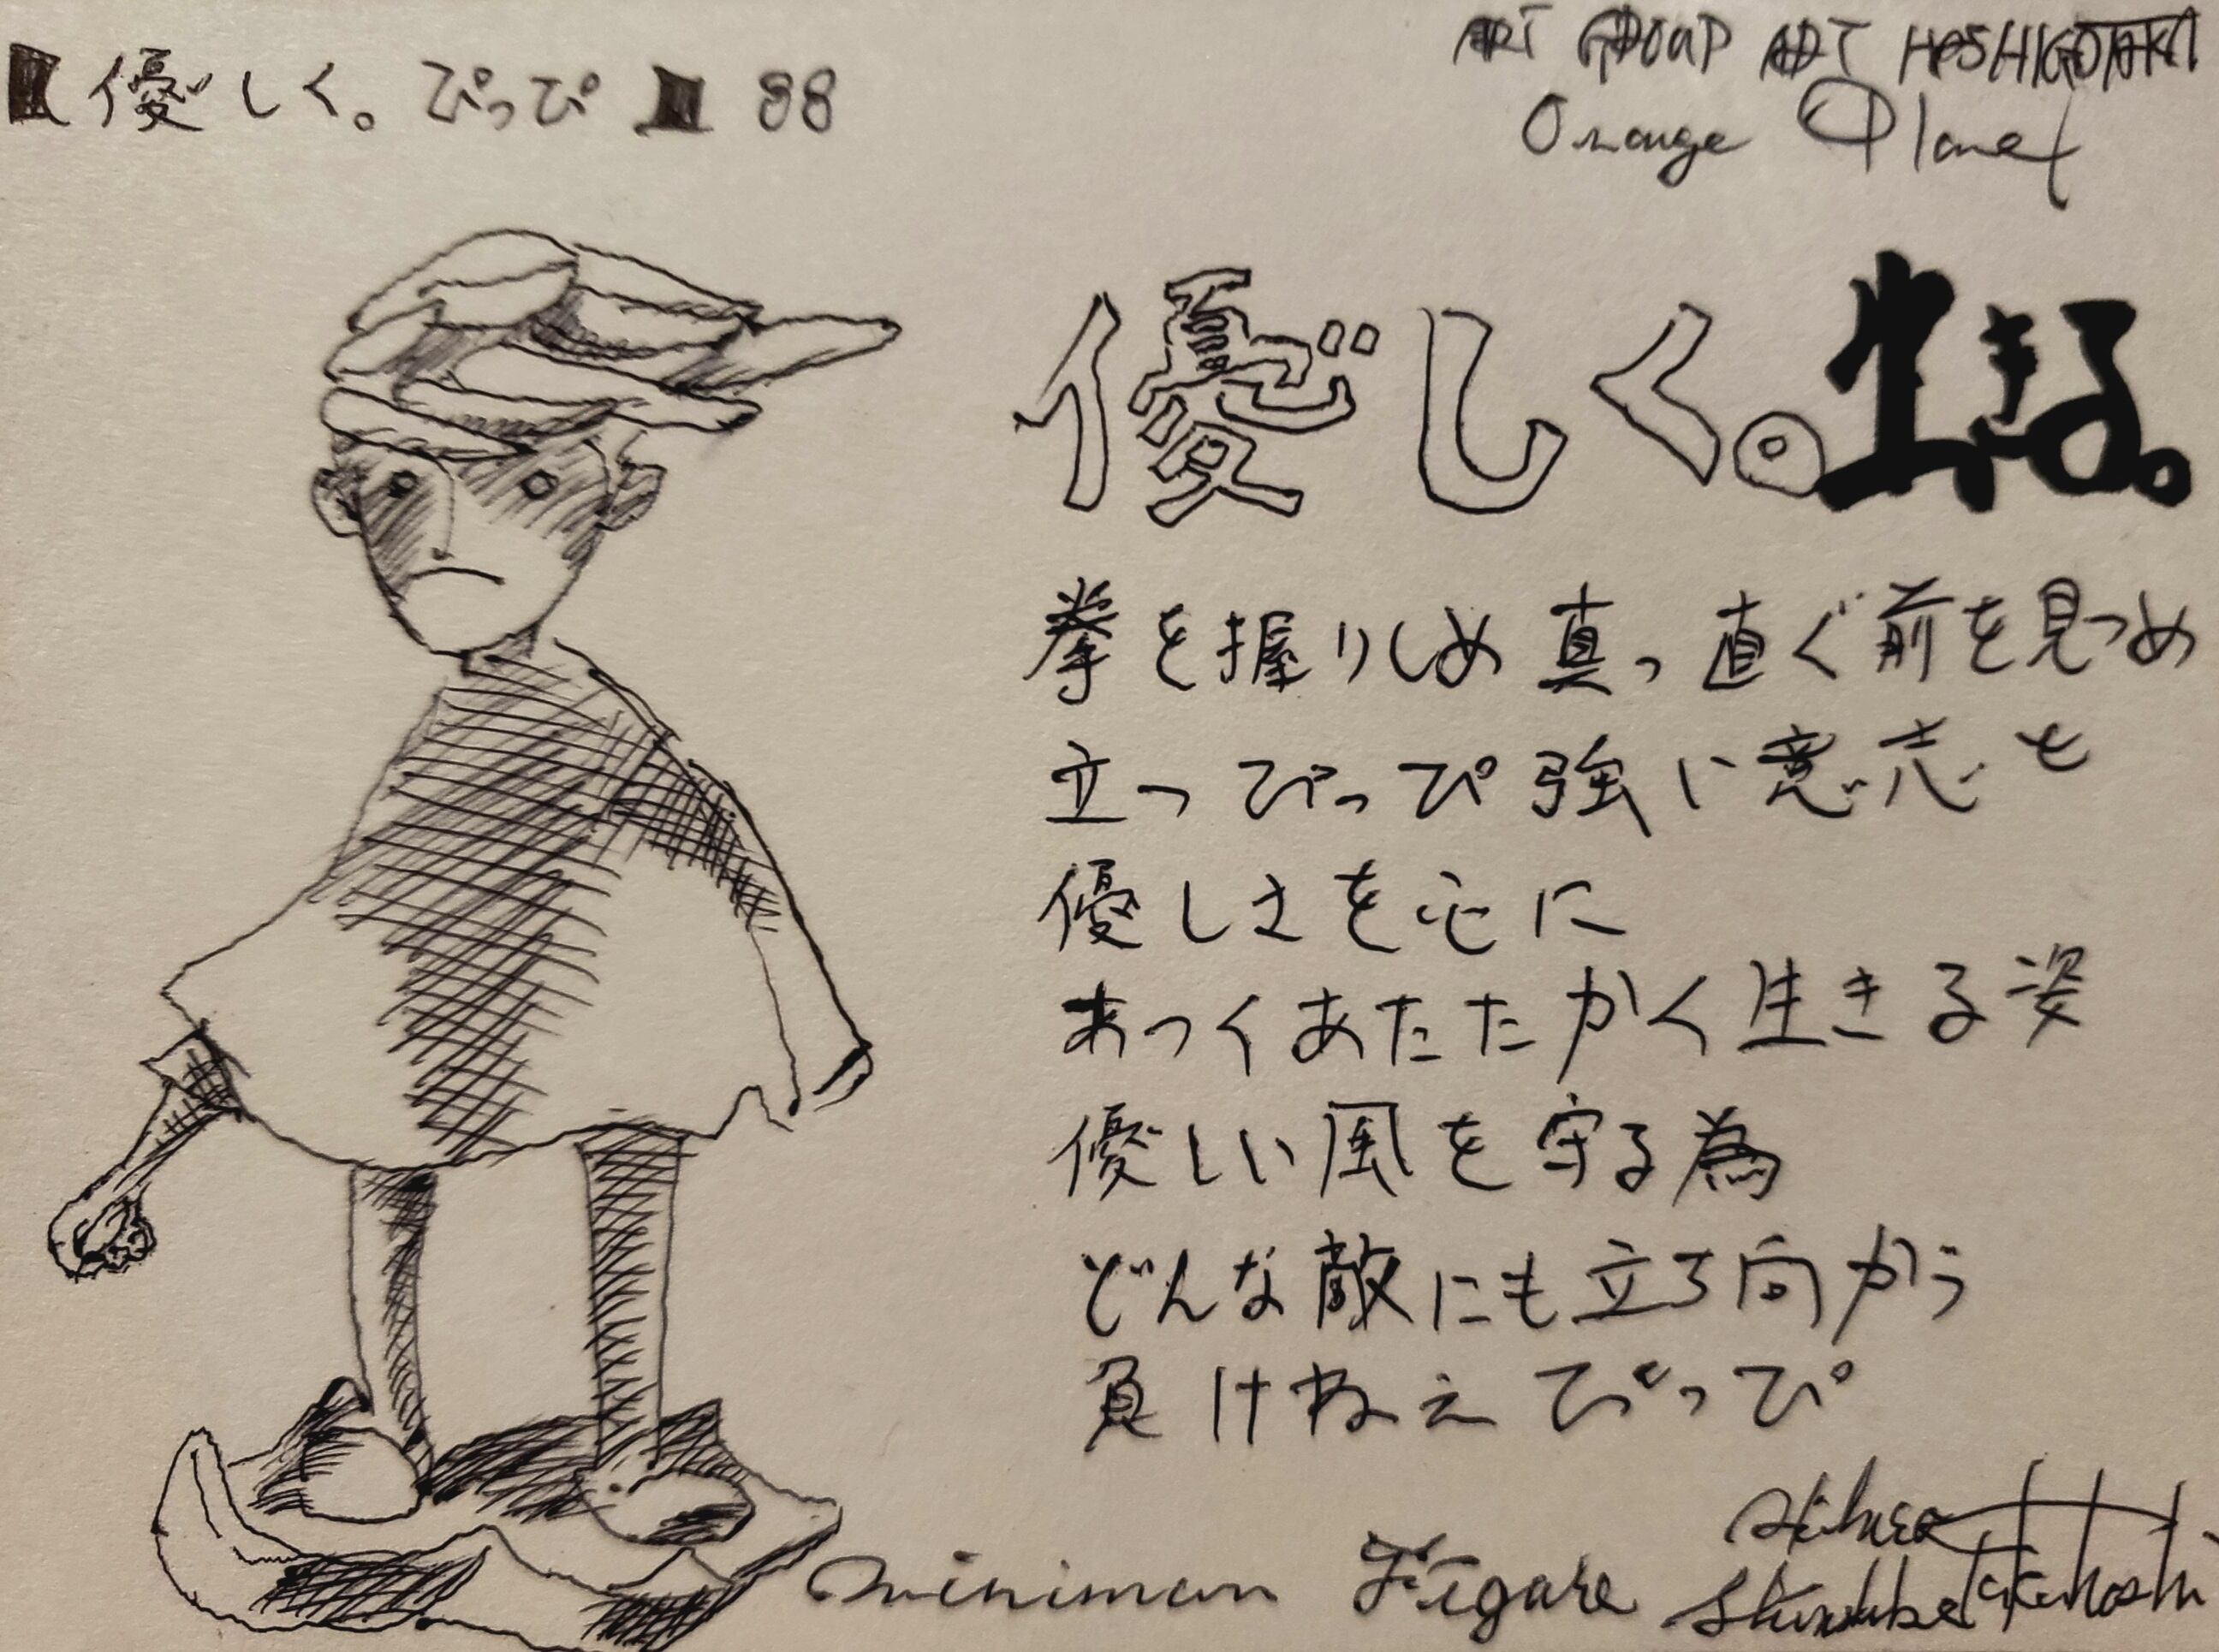 優しく。ぴっぴ 88
ART GROUP ART HOSHIGOTAKU
Orange Planet
優しく。生きる。
拳を握りしめ真っ直ぐ前を見つめ
立つ ぴっぴ 強い意志と
優しさを心に
あつくあたたかく生きる姿
優しい風を守る為
どんな敵にも立ち向かう
負けねえ ぴっぴ
minimum Figure